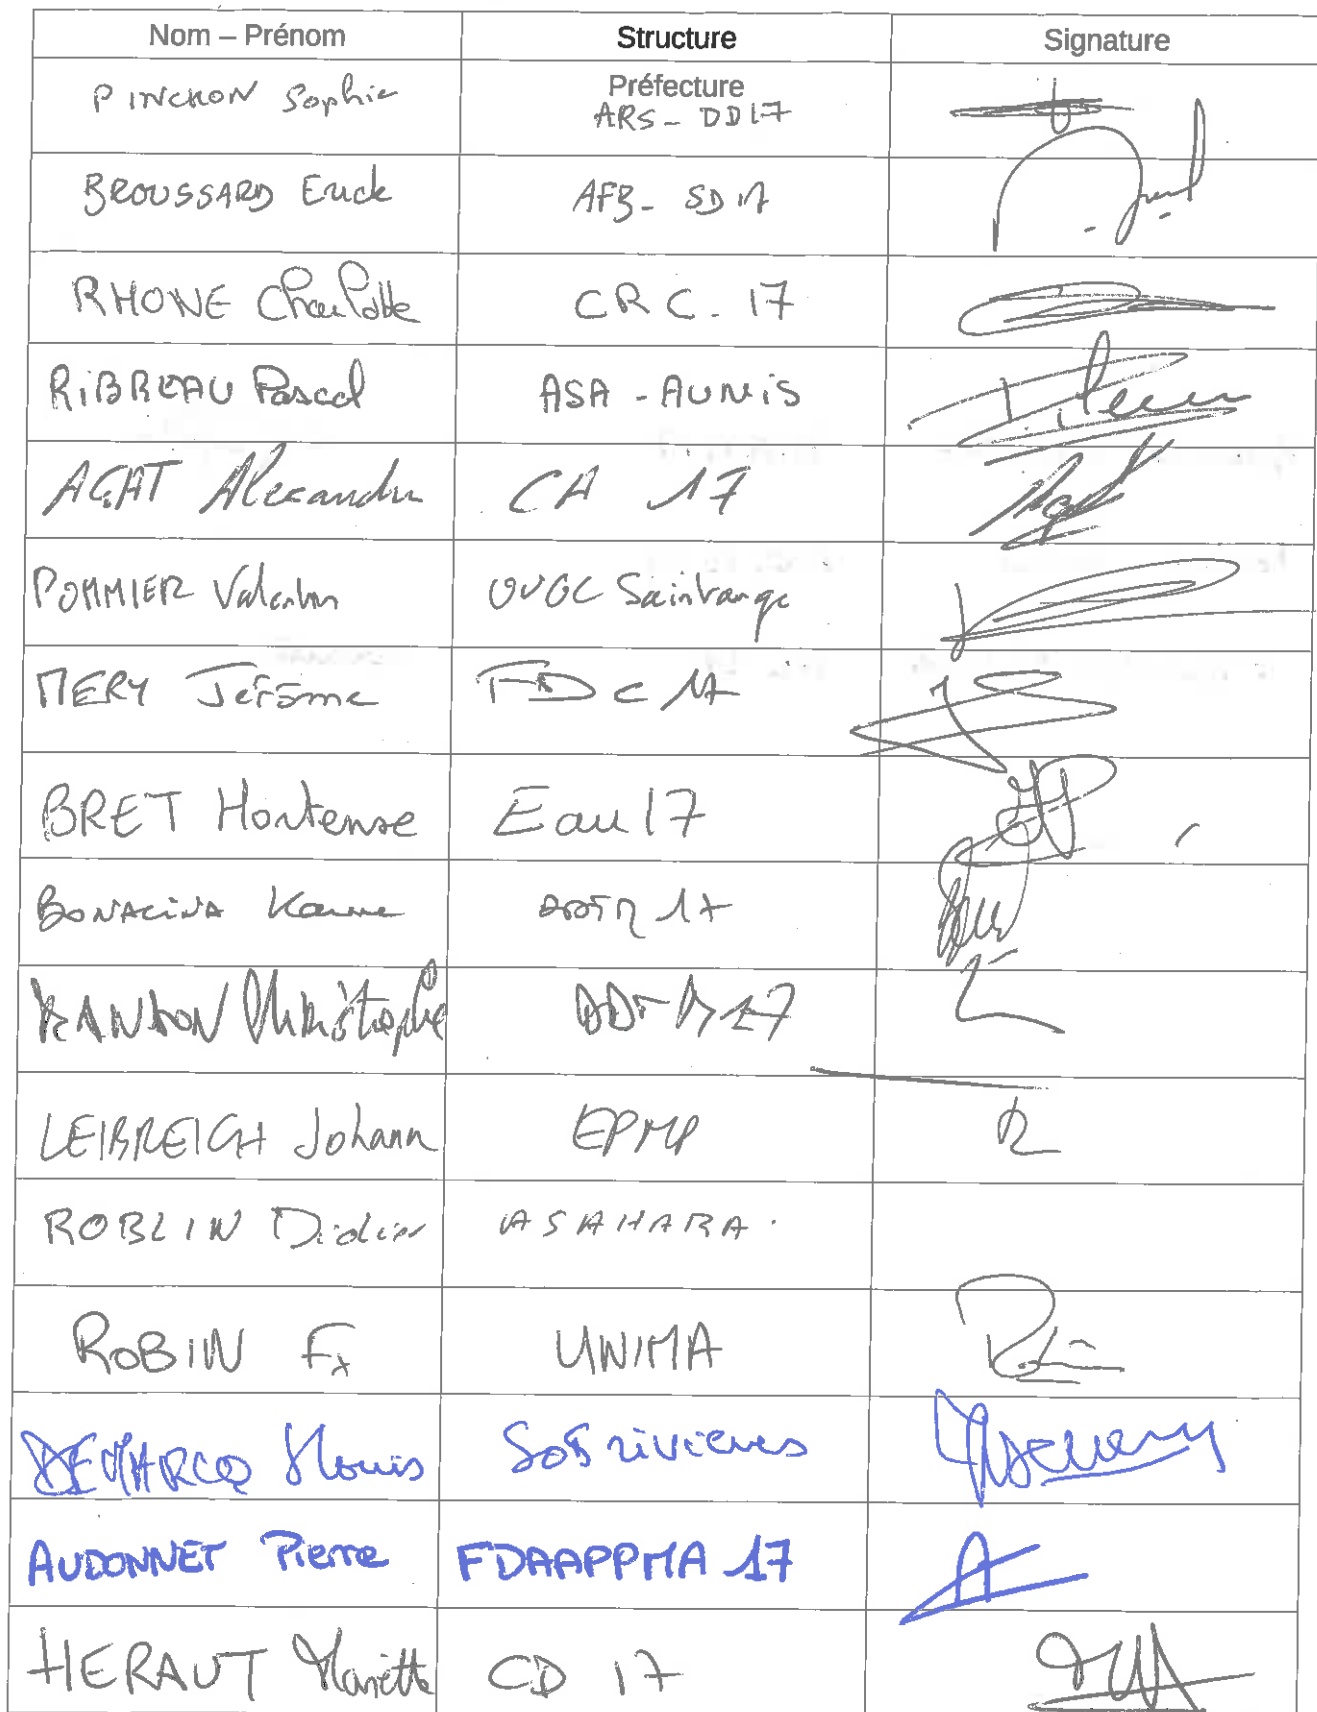 Nom – Prénom Structure Signature
PINCHON Sophie Préfecture
ARS - DD17
BROUSSARD Erick AFB - SD 17
RHONE Charlotte CRC. 17
RIBREAU Pascal ASA - AUNIS
AGAT Alexandre CA 17
POMMIER Valentin OUGC Saintonge
MERY Jérôme FDC 17
BRET Hortense Eau 17
BONACINA Karine DDTM 17
Christophe DDTM 17
LEIBREICH Johann EPMP
ROBLIN Didier ASAHARA
ROBIN Fx UNIMA
DEMARCQ SOS rivières
AUDONNET Pierre FDAAPPMA 17
HERAUT Mariette CD 17